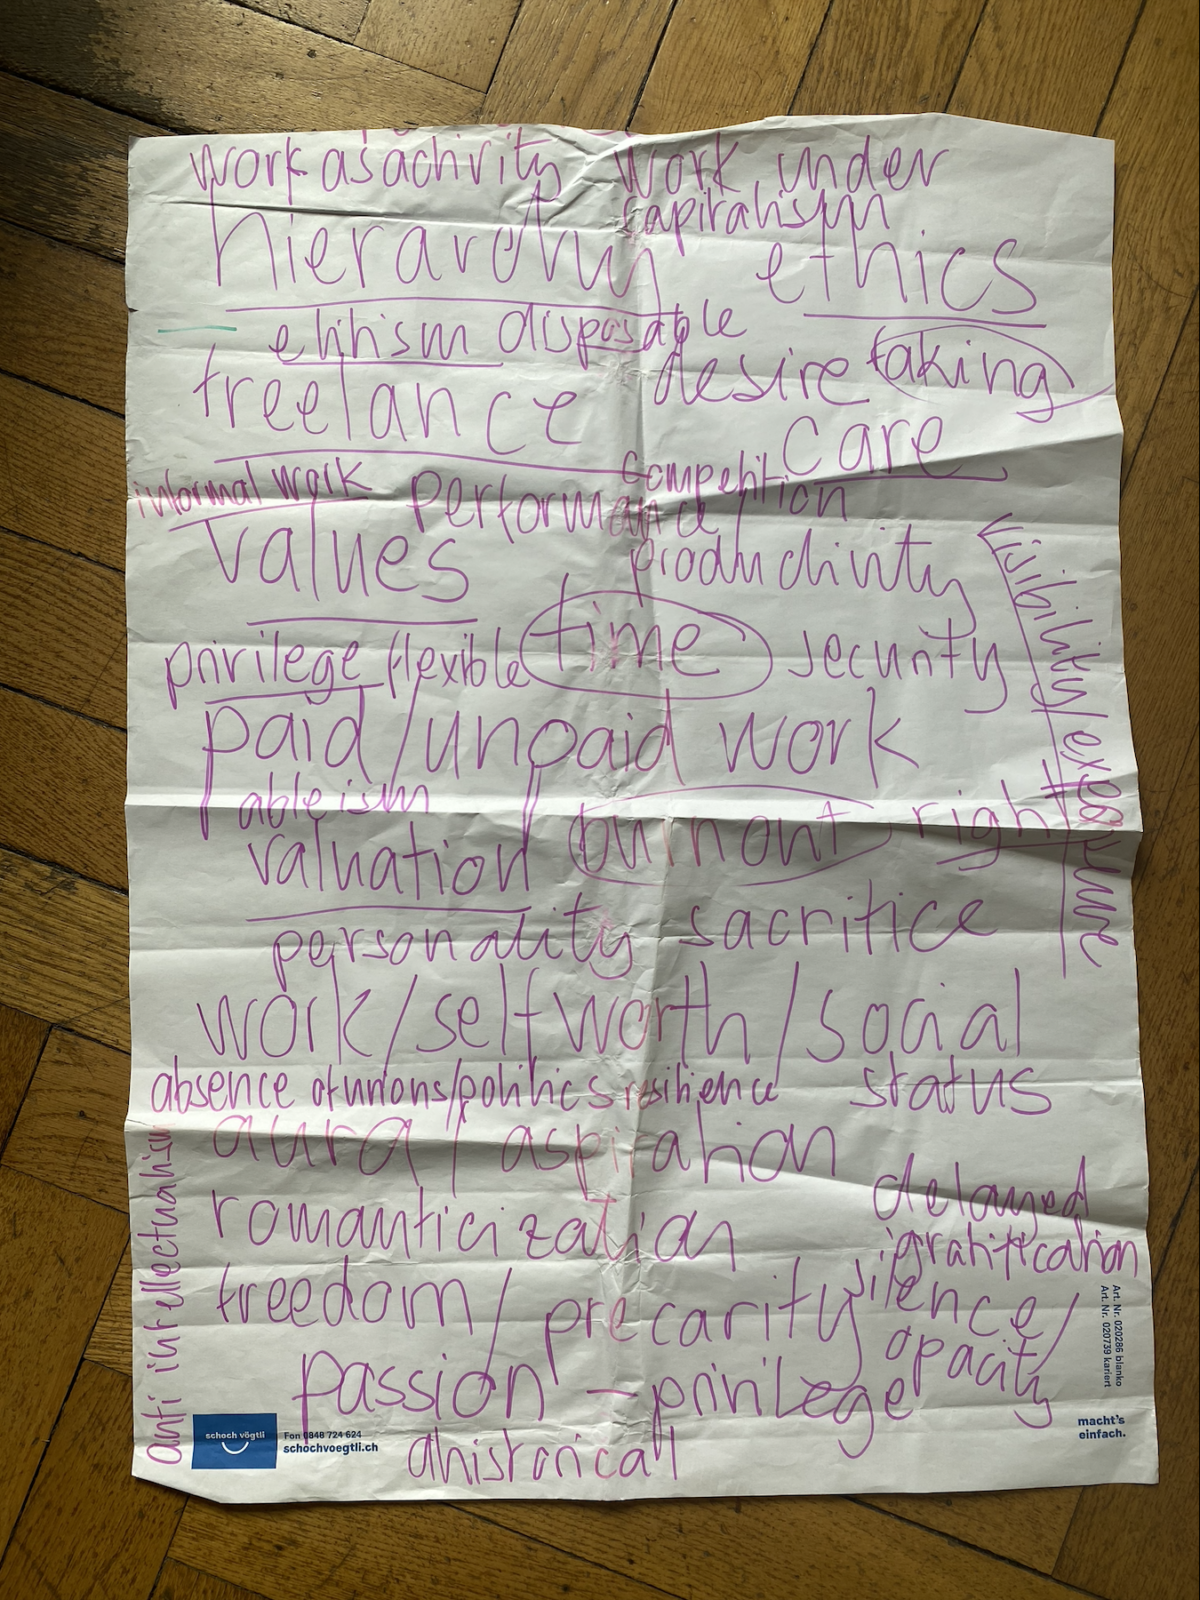 work as activity work under
capitalism
hierarchy ethics
elitism disposable
freelance desire taking
care
informal work performance/
competition
values productivity
visibility/exposure
privilege flexible time security
paid/unpaid work
ableism
valuation burnout right
personality sacrifice
work/self worth/social
status
absence of unions/politics resilience
aura/aspiration
anti intellectualism
romanticization
delayed
gratification
freedom/precarity
silence/
opacity
passion – privilege
ahistorical
schoch vögtli
Fon 0848 724 624
schochvoegtli.ch
Art. Nr. 020286 blanko
Art. Nr. 020739 kariert
macht's
einfach.